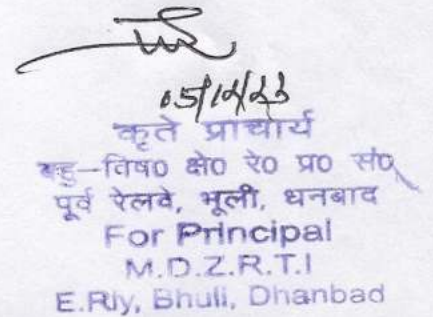 05/12/23
कृते प्राचार्य
बहु-विष० क्षे० रे० प्र० सं०
पूर्व रेलवे, भूली, धनबाद
For Principal
M.D.Z.R.T.I
E.Rly, Bhuli, Dhanbad